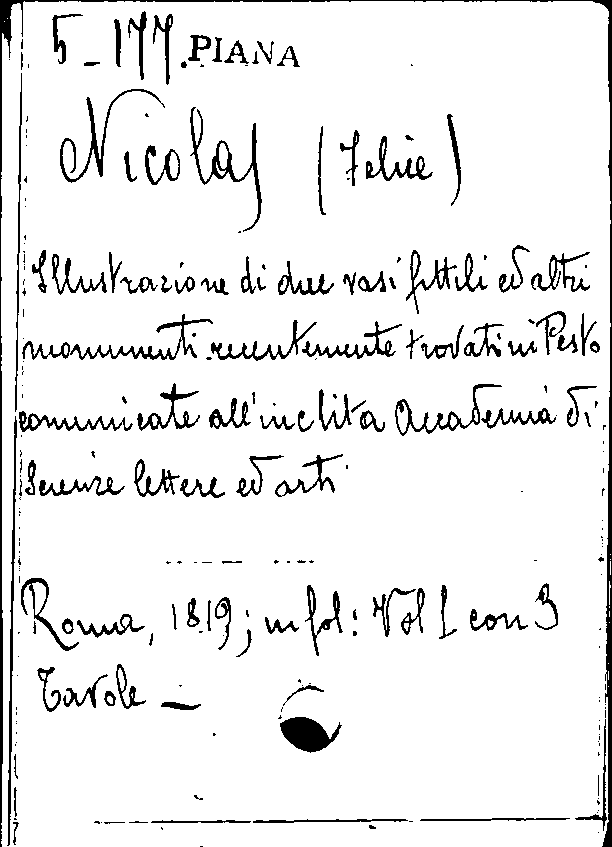 5_177. PIANA
Nicolas (Felice)
Illustrazione di due vasi fittili ed altri
monumenti recentemente trovati in Pesto
comunicate all'inclita Accademia di
Scienze lettere ed arti
Roma, 1819; in fol: Vol I con 3
Tavole —